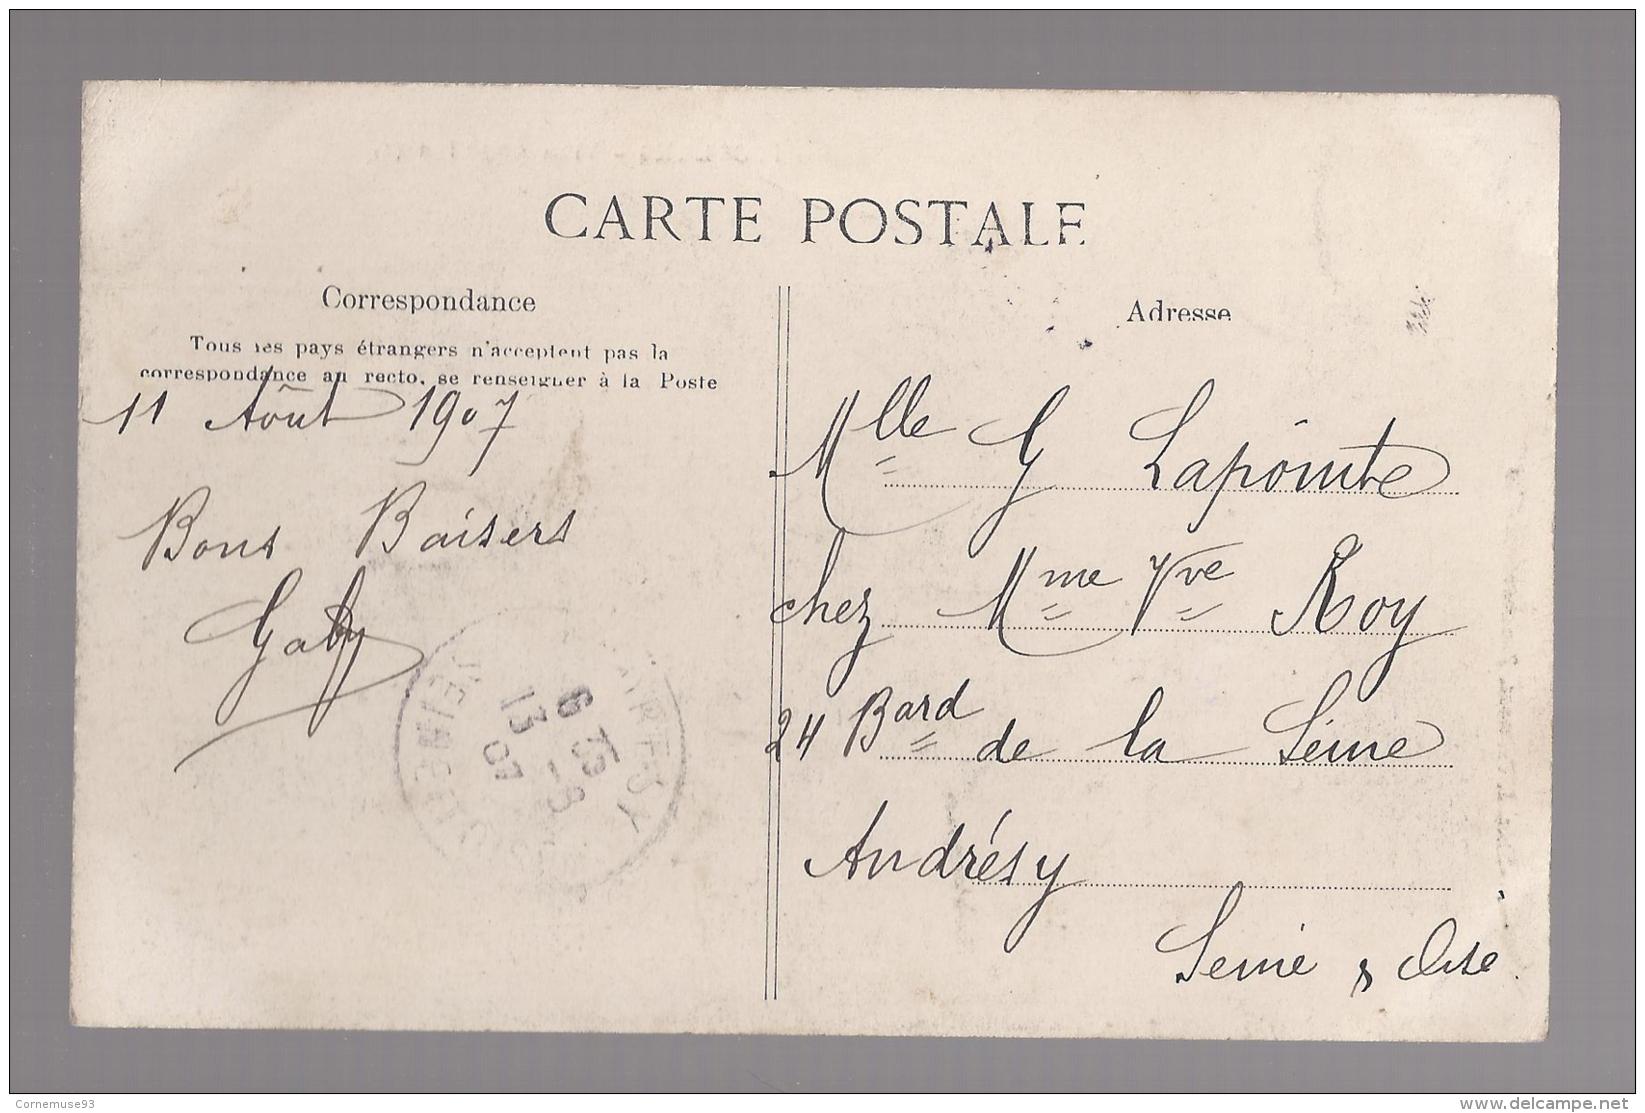 CARTE POSTALE
Correspondance
Tous les pays étrangers n'acceptent pas la
correspondance au recto, se renseigner à la Poste
11 Août 1907
Bons Baisers
Gaby
ANDRESY
SEINE-ET-OISE
6 35
13 -8
07
Adresse
Mlle G Lapointe
chez Mme Vve Roy
24 Bard de la Seine
Andrésy
Seine & Oise.
Cornemuse93
www.delcampe.net